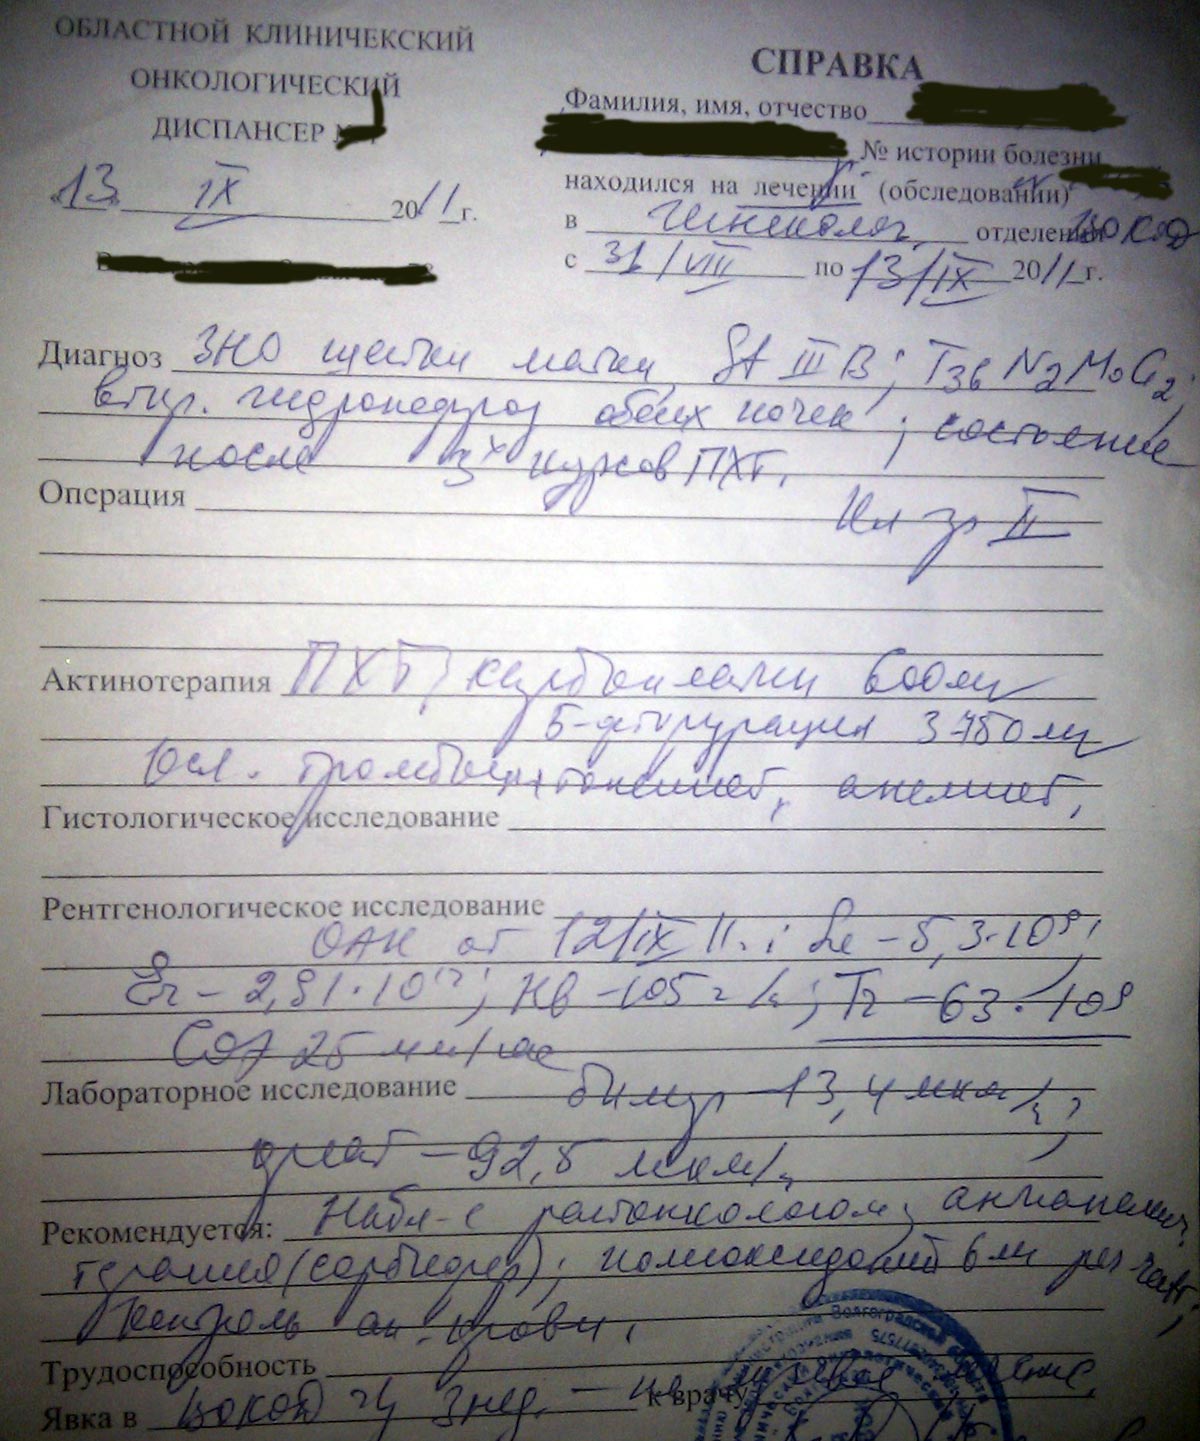 ОБЛАСТНОЙ КЛИНИЧЕКСКИЙ
ОНКОЛОГИЧЕСКИЙ
ДИСПАНСЕР
13 IX 2011 г.
СПРАВКА
Фамилия, имя, отчество
№ истории болезни
находился на лечении (обследовании)
в гинеколог. отделении
с 31/VIII по 13/IX 2011 г.
Диагноз ЗНО шейки матки, St III B; T3б N2 M0 G2;
втор. гидронефроз обеих почек; состояние
после 3х курсов ПХТ.
Операция
Кл гр II
Актинотерапия ПХТ, карбоплатин 600 мг
5-фторурацил 3750 мг
Осл. тромбоцитопения, анемия,
Гистологическое исследование
Рентгенологическое исследование
ОАК от 12/IX 11. : Le - 5,3·10⁹;
Er - 2,91·10¹²; Hb - 105 г/л; Tr - 63·10⁹
СОЭ 25 мм/час
Лабораторное исследование 13,4 мкм/л;
креат - 92,5 мкм/л
Рекомендуется:
терапия (сорбифер); 6 мг
контроль ан. крови.
Трудоспособность
Явка в ч/з 3 нед. к врачу